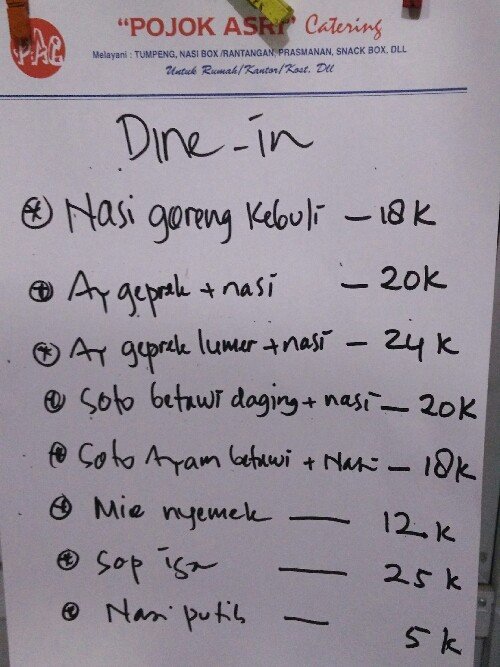 PAC
"POJOK ASRI" Catering
Melayani : TUMPENG, NASI BOX /RANTANGAN, PRASMANAN, SNACK BOX, DLL
Untuk Rumah/Kantor/Kost, Dll
Dine-in
Nasi goreng Kebuli – 18K
Ay geprek + nasi – 20K
Ay geprek lumer + nasi – 24K
Soto betawi daging + nasi – 20K
Soto Ayam betawi + Nasi – 18K
Mie nyemek — 12K
Sop iga — 25K
Nasi putih — 5K